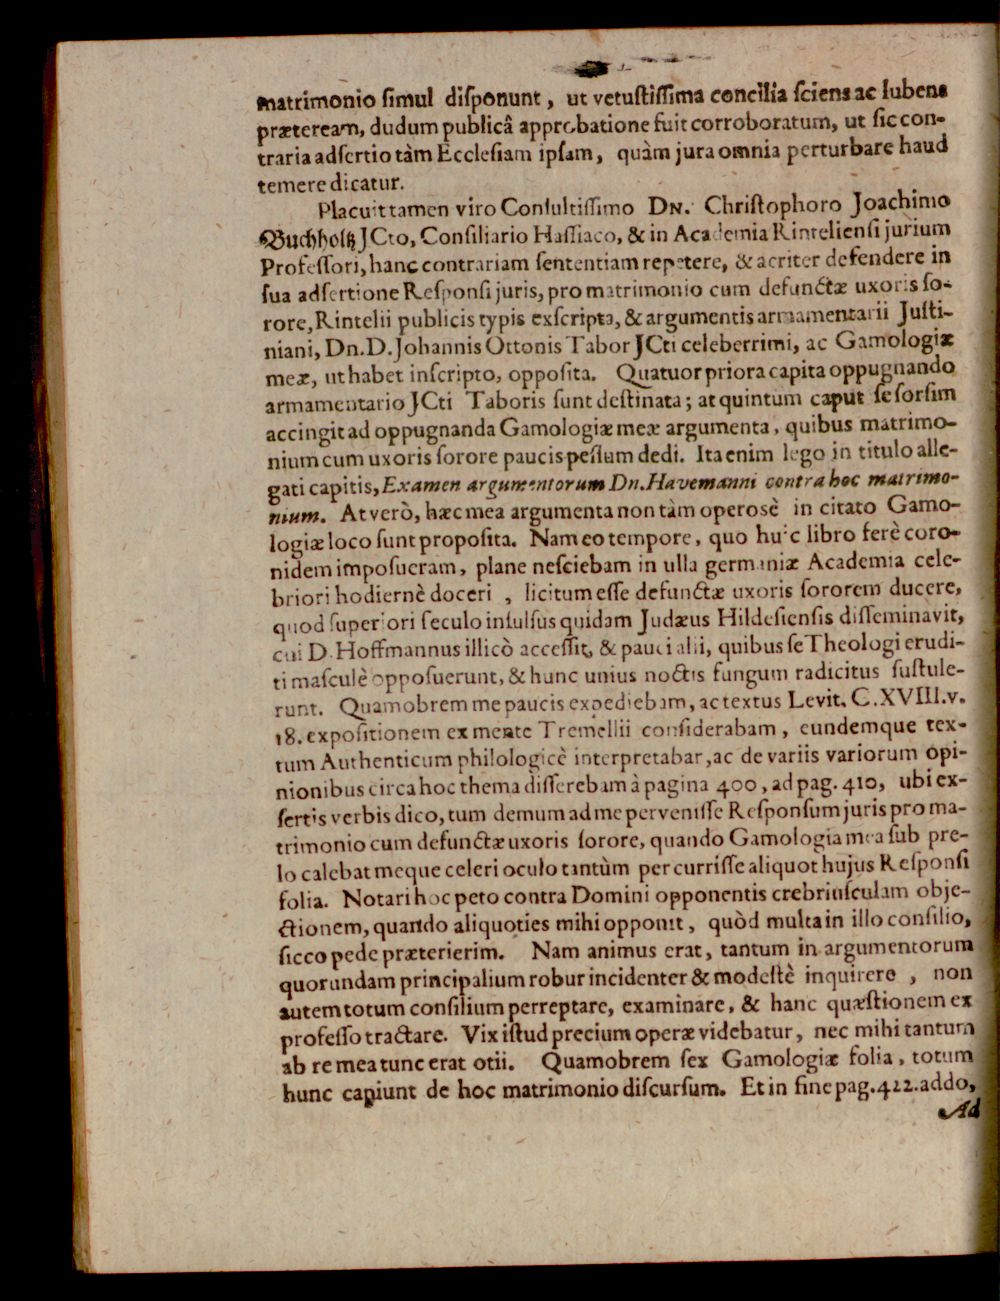 matrimonio ſimul diſponunt, ut vetuſtiſſima concilia ſciens ac lubens
præteream, dudum publicâ approbatione fuit corroboratum, ut ſic con-
traria adſertio tàm Eccleſiam ipſam, quàm jura omnia perturbare haud
temere dicatur.
Placuit tamen viro Conſultiſſimo DN. Chriſtophoro Joachimo
Buchholtz JCto, Conſiliario Haſſiaco, & in Academia Rintelienſi jurium
Profeſſori, hanc contrariam ſententiam repetere, & acriter defendere in
ſua adſertione Reſponſi juris, pro matrimonio cum defunctæ uxoris ſo-
rore, Rintelii publicis typis exſcripta, & argumentis armamentarii Juſti-
niani, Dn. D. Johannis Ottonis Tabor JCti celeberrimi, ac Gamologiæ
meæ, ut habet inſcripto, oppoſita. Quatuor priora capita oppugnando
armamentario JCti Taboris ſunt deſtinata; at quintum caput ſeſorſim
accingit ad oppugnanda Gamologiæ meæ argumenta, quibus matrimo-
nium cum uxoris ſorore paucis peſſum dedi. Ita enim lego in titulo alle-
gati capitis, Examen argumentorum Dn. Havemanni contra hoc matrimo-
nium. At verò, hæc mea argumenta non tàm operosè in citato Gamo-
logiæ loco ſunt propoſita. Nam eo tempore, quo huic libro ferè coro-
nidem impoſueram, plane neſciebam in ulla germaniæ Academia cele-
briori hodiernè doceri, licitum eſſe defunctæ uxoris ſororem ducere,
quod ſuperiori ſeculo inſulſus quidam Judæus Hildeſienſis diſſeminavit,
cui D. Hoffmannus illicò acceſſit, & pauci alii, quibus ſe Theologi erudi-
ti maſculè oppoſuerunt, & hunc unius noctis fungum radicitus ſuſtule-
runt. Quamobrem me paucis expediebam, ac textus Levit. C. XVIII. v.
18. expoſitionem ex mente Tremellii conſiderabam, eundemque tex-
tum Authenticum philologicè interpretabar, ac de variis variorum opi-
nionibus circa hoc thema diſſerebam à pagina 400, ad pag. 410, ubi ex-
ſertis verbis dico, tum demum ad me perveniſſe Reſponſum juris pro ma-
trimonio cum defunctæ uxoris ſorore, quando Gamologia mea ſub pre-
lo calebat meque celeri oculo tantùm percurriſſe aliquot hujus Reſponſi
folia. Notari hoc peto contra Domini opponentis crebriuſculam obje-
ctionem, quando aliquoties mihi opponit, quòd multa in illo conſilio,
ſicco pede præterierim. Nam animus erat, tantum in argumentorum
quorundam principalium robur incidenter & modeſtè inquirere, non
autem totum conſilium perreptare, examinare, & hanc quæſtionem ex
profeſſo tractare. Vix iſtud precium operæ videbatur, nec mihi tantum
ab re mea tunc erat otii. Quamobrem ſex Gamologiæ folia, totum
hunc capiunt de hoc matrimonio diſcurſum. Et in fine pag. 422. addo,
Ad